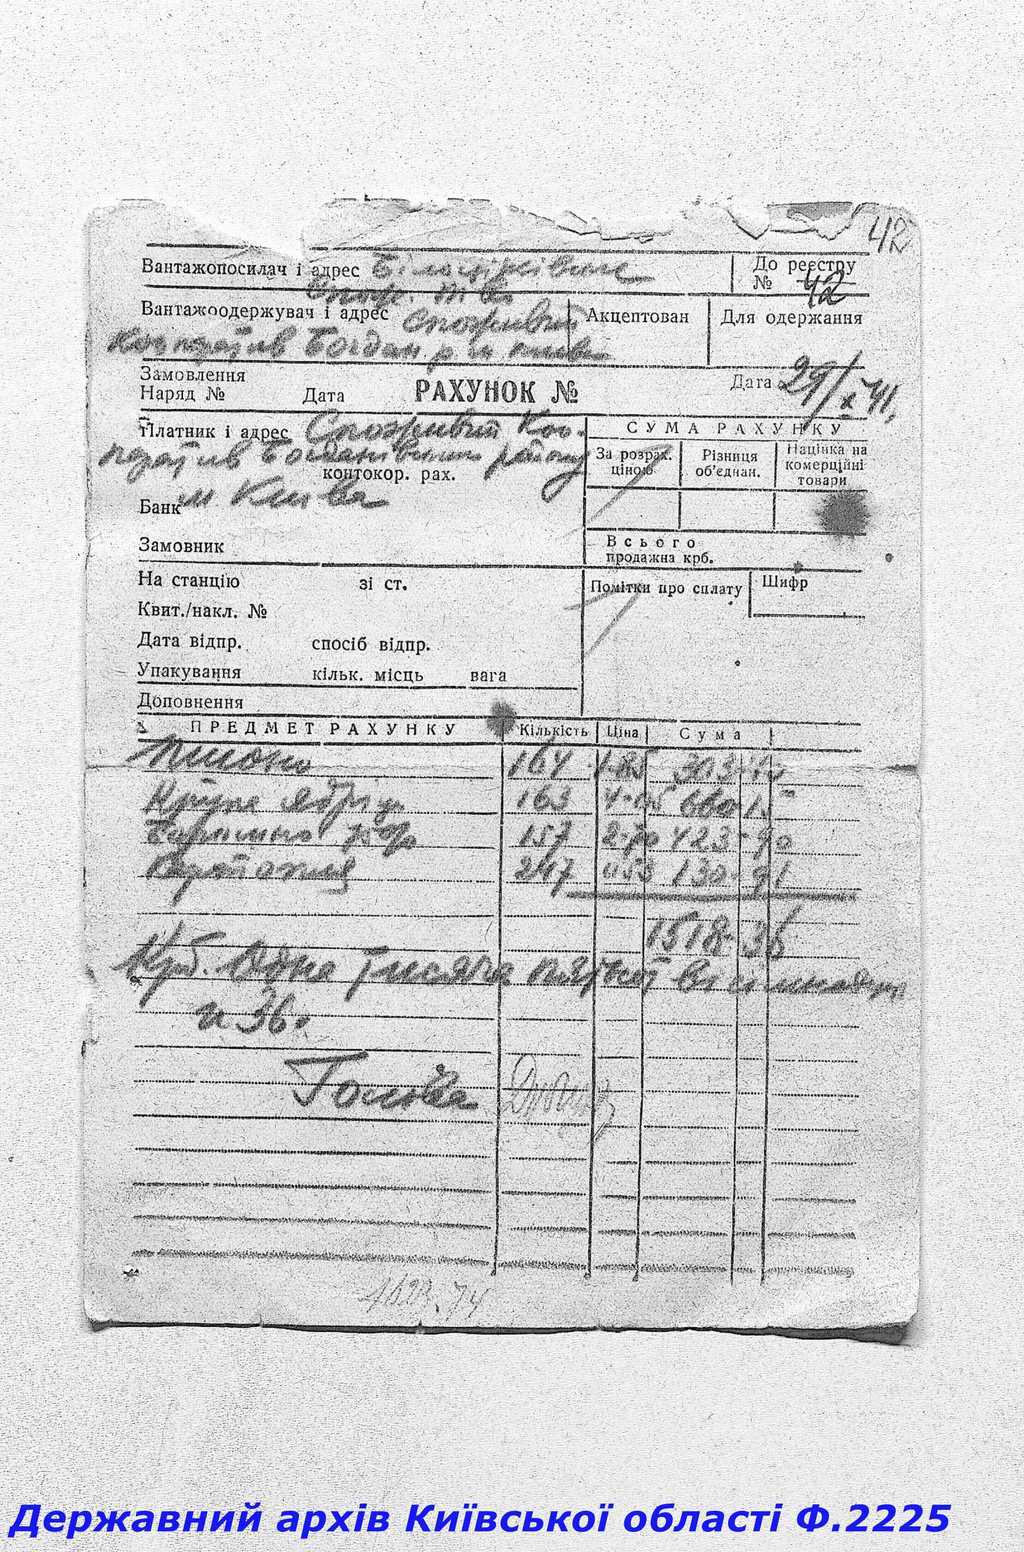 42
Вантажопосилач і адрес Білоцерківське
Спож. т-во
До реєстру
№ 42
Вантажоодержувач і адрес Споживчий
Кооператив Богдан. р м. Києва
Акцептован
Для одержання
Замовлення
Наряд №
Дата
РАХУНОК №
Дата 29/X 41.
Платник і адрес Споживчий Коо-
ператив Богданівського району
контокор. рах.
м. Києва
Банк
СУМА РАХУНКУ
За розрах. ціною
Різниця об'єднан.
Націнка на комерційні товари
Всього
продажна крб.
Замовник
На станцію зі ст.
Помітки про сплату
Шифр
Квит./накл. №
Дата відпр. спосіб відпр.
Упакування кільк. місць вага
Доповнення
ПРЕДМЕТ РАХУНКУ Кількість Ціна Сума
Пшоно 164 1-85 303-40
Крупа 163 4-05 660-15
157 2-70 423-90
Картопля 247 0-53 130-91
1518-36
Крб. Одна тисяча п'ятсот вісімнадцять
и 36.
Голова
1623.74
Державний архів Київської області Ф.2225